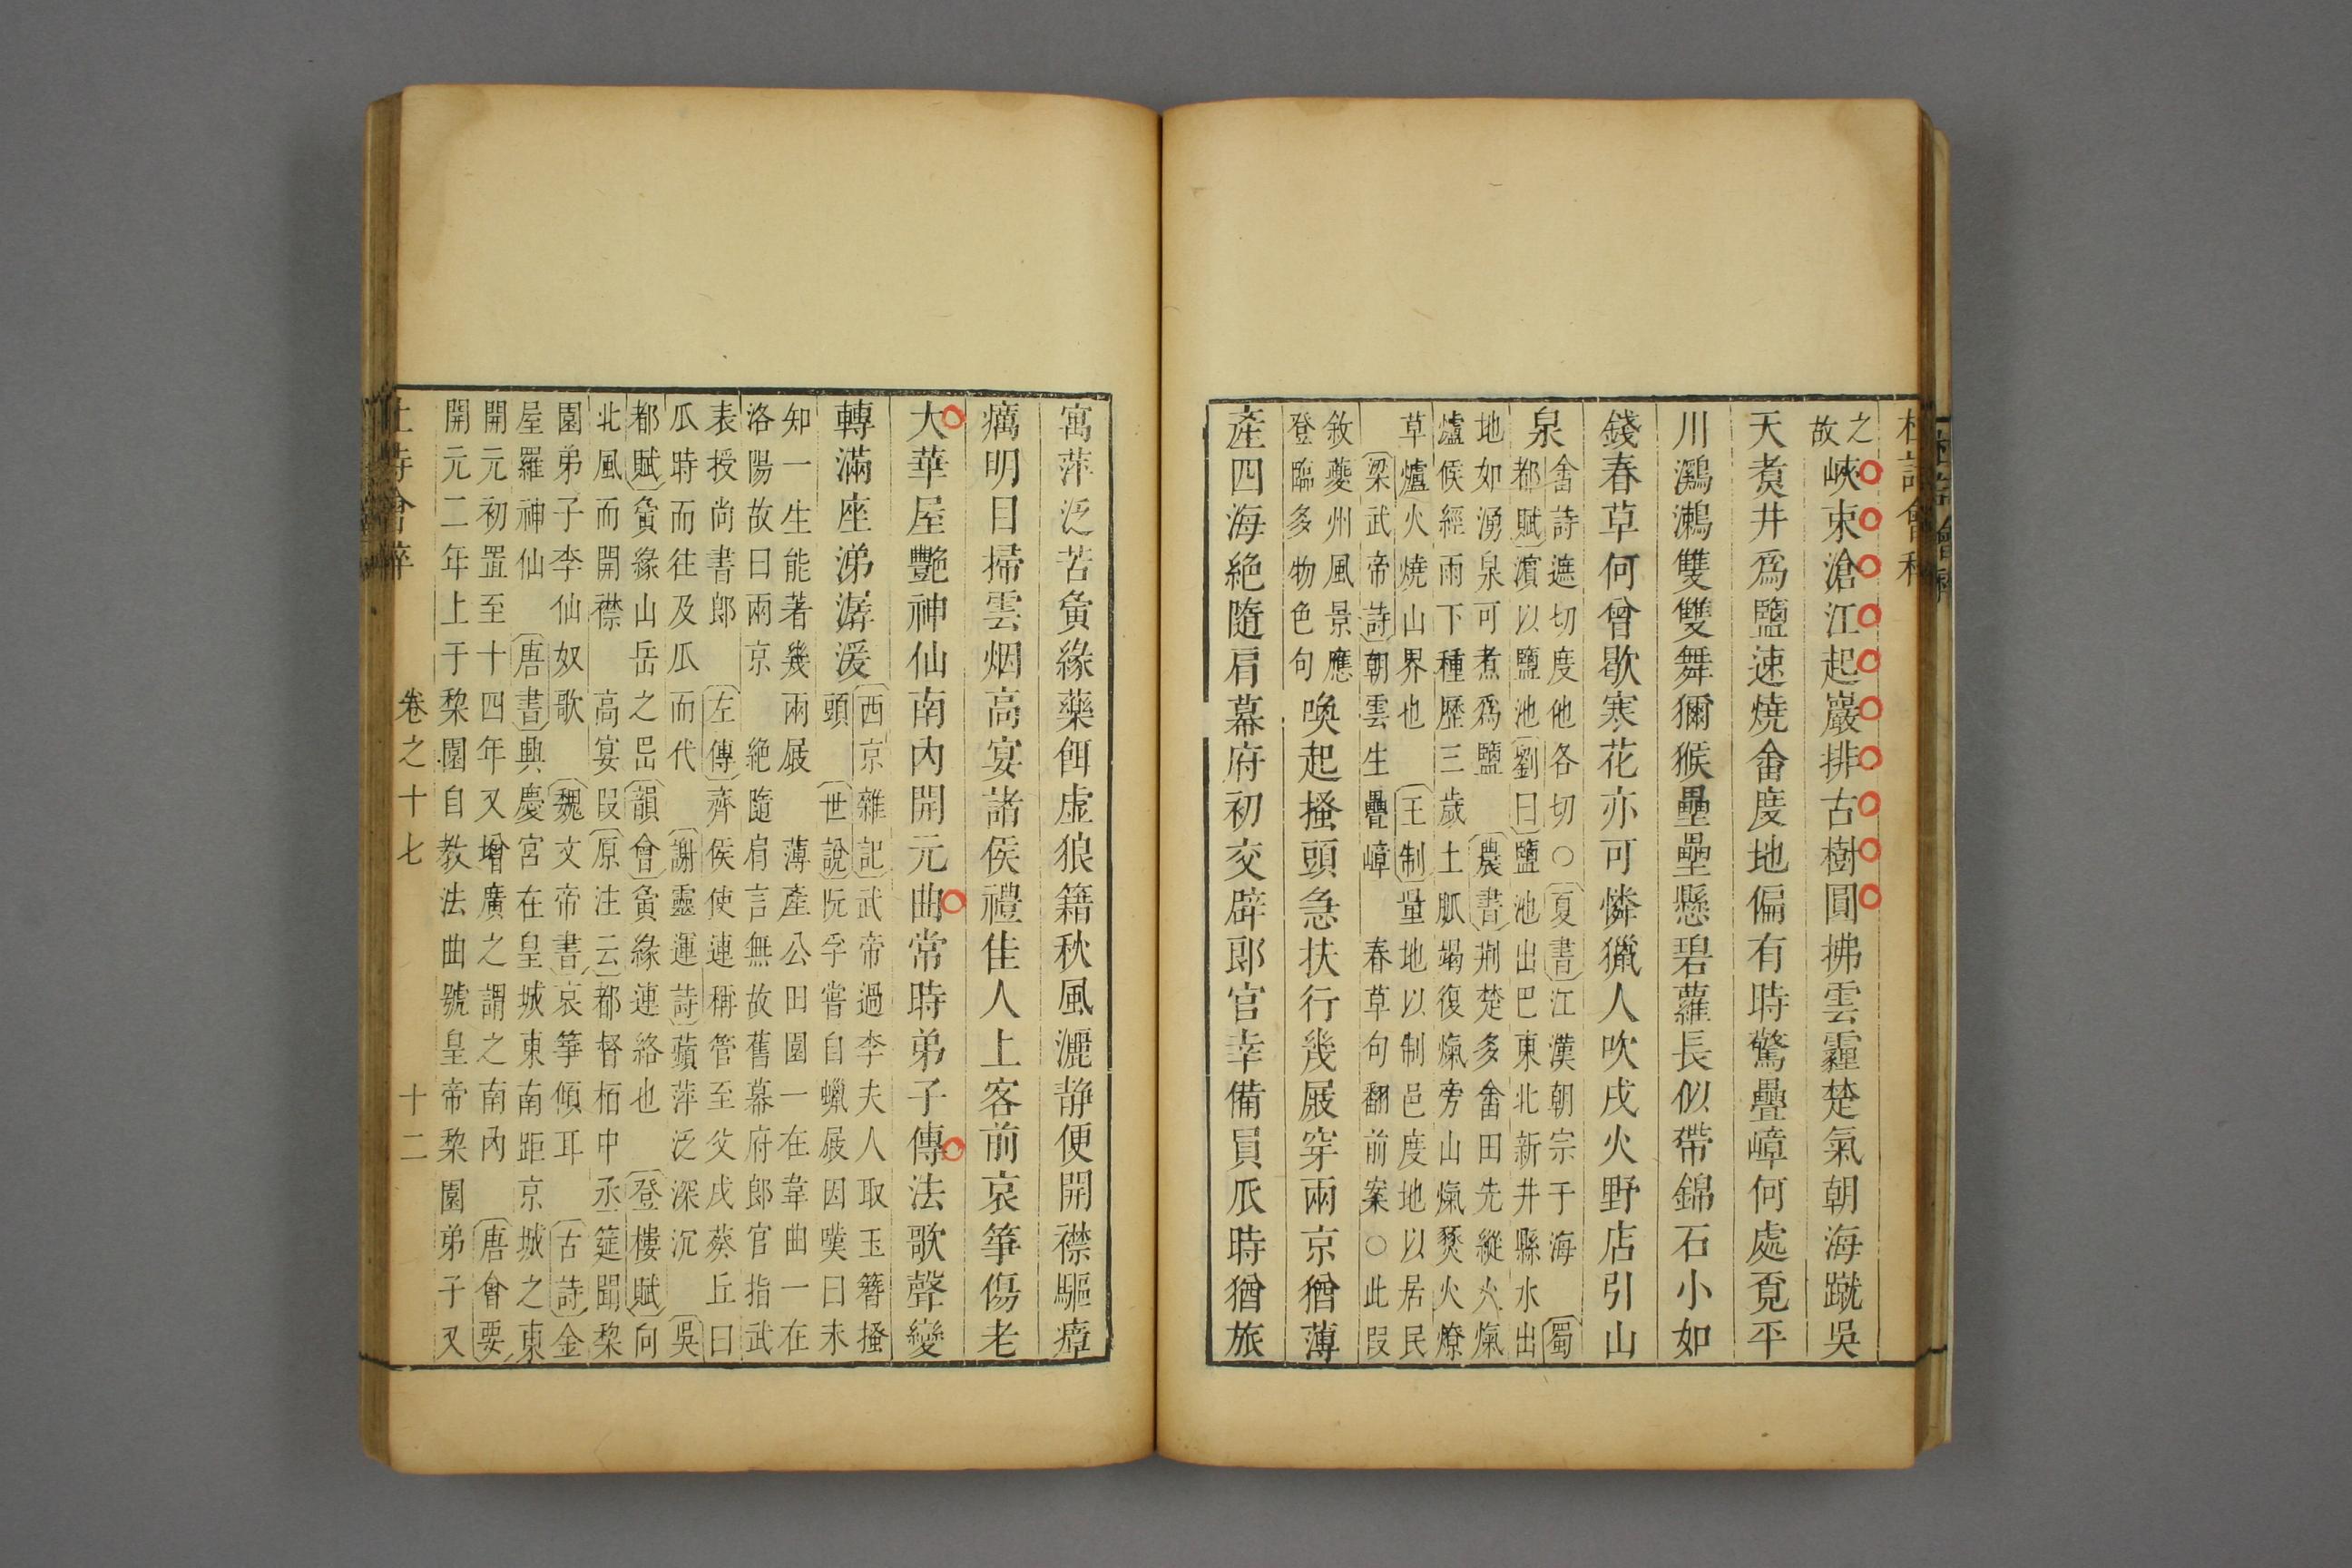 之
故
峽束滄江起巖排古樹圓拂雲霾楚氣朝海蹴吳
天煮井爲鹽速燒畬度地偏有時驚疊嶂何處覔平
川鸂鶒雙雙舞獼猴壘壘懸碧蘿長似帶錦石小如
錢春草何曾歇寒花亦可憐獵人吹戍火野店引山
泉
畬詩遮切度他各切○夏書江漢朝宗于海 蜀
都賦濵以鹽池劉曰鹽池出巴東北新井縣水出
地如湧泉可煮爲鹽 農書荆楚多畬田先縱火熂
爐候經雨下種歷三歲土脈竭復熂旁山熂燹火燎
草爐火燒山界也 王制量地以制邑度地以居民
梁武帝詩朝雲生疊嶂 春草句翻前案○此叚
敘夔州風景應
登臨多物色句
喚起搔頭急扶行幾屐穿兩京猶薄
產四海絶隨肩幕府初交辟郎官幸備員瓜時猶旅
寓萍泛苦夤緣藥餌虛狼籍秋風灑静便開襟驅瘴
癘明目掃雲烟高宴諸侯禮佳人上客前哀箏傷老
大華屋艷神仙南內開元曲常時弟子傳法歌聲變
轉滿座涕潺湲
西京雜記武帝過李夫人取玉簪搔
頭 世說阮孚嘗自蠟屐因嘆曰未
知一生能著幾兩屐 薄產公田園一在韋曲一在
洛陽故曰兩京 絶隨肩言無故舊幕府郎官指武
表授尚書郎 左傳齊侯使連稱管至父戍葵丘曰
瓜時而往及瓜而代 謝靈運詩蘋萍泛深沉 吳
都賦夤緣山岳之岊韻會夤緣連絡也 登樓賦向
北風而開襟 高宴叚原注云都督栢中丞筵聞梨
園弟子李仙奴歌 魏文帝書哀箏傾耳 古詩金
屋羅神仙 唐書興慶宮在皇城東南距京城之東
開元初置至十四年又增廣之謂之南內 唐會要
開元二年上于梨園自教法曲號皇帝梨園弟子又
卷之十七 十二